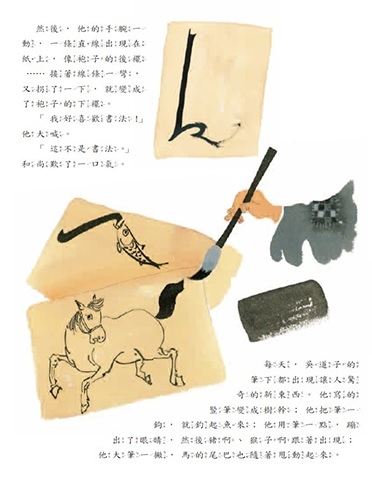 然後，他的手腕一
動，一條直線出現在
紙上，像袍子的後襬
……接著線條一彎，
又拐了一下，就變成
了袍子的下襬。
「我好喜歡書法！」
他大喊。
「這不是書法。」
和尚歎了一口氣。
每天，吳道子的
筆下都出現讓人驚
奇的新東西。他寫的
豎筆變成樹幹；他把筆一
鉤，就釣起魚來；他用筆一點，蹦
出了眼睛，然後豬啊、猴子啊跟著出現；
他大筆一撇，馬的尾巴也隨著甩動起來。